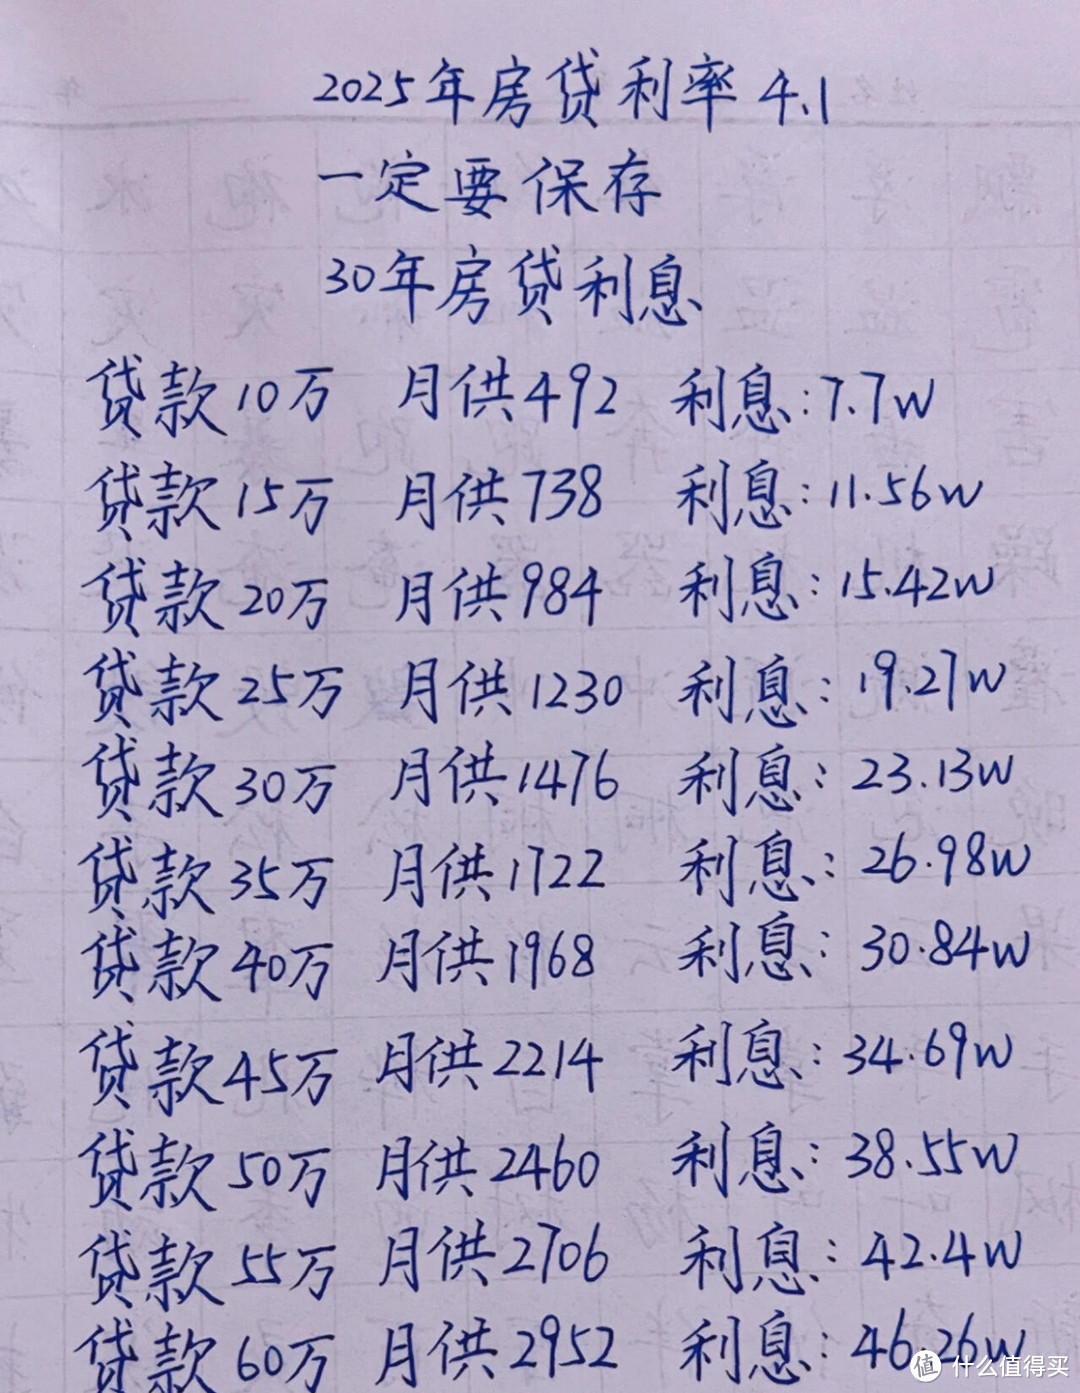 2025年房贷利率4.1
一定要保存
30年房贷利息
贷款10万 月供492 利息:7.7w
贷款15万 月供738 利息:11.56w
贷款20万 月供984 利息:15.42w
贷款25万 月供1230 利息:19.27w
贷款30万 月供1476 利息:23.13w
贷款35万 月供1722 利息:26.98w
贷款40万 月供1968 利息:30.84w
贷款45万 月供2214 利息:34.69w
贷款50万 月供2460 利息:38.55w
贷款55万 月供2706 利息:42.4w
贷款60万 月供2952 利息:46.26w
值 什么值得买